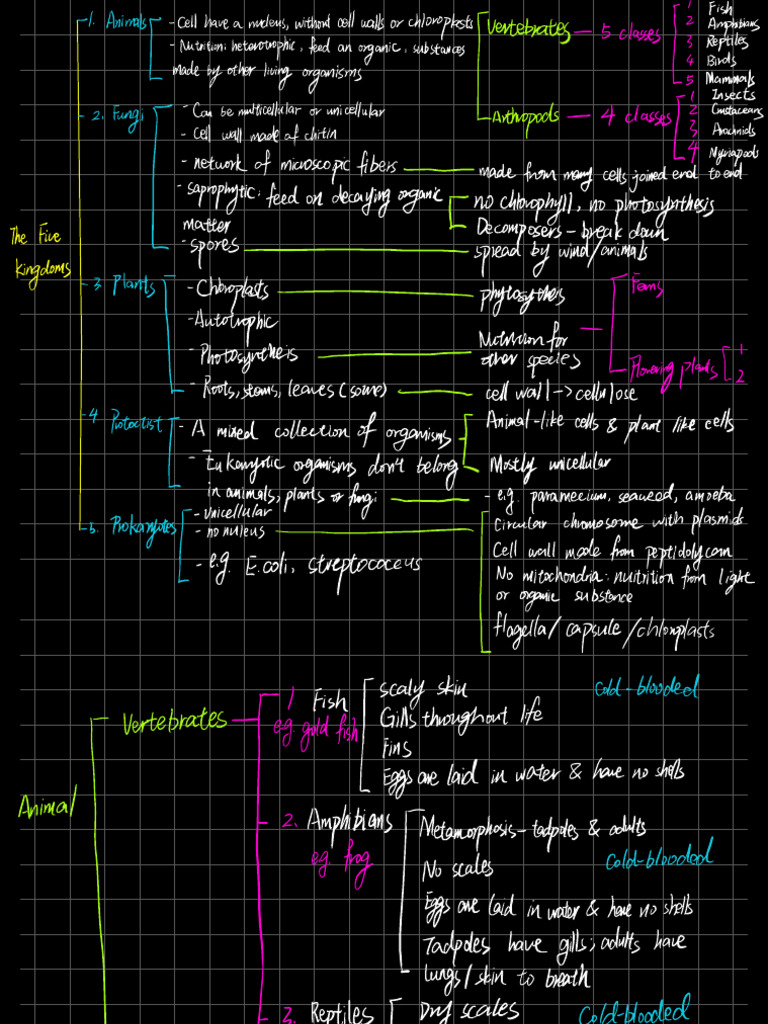 1. Animals
- Cell have a nucleus, without cell walls or chloroplasts
- Nutrition: heterotrophic, feed an organic, substances
made by other living organisms
Vertebrates — 5 classes
1 Fish
2 Amphibians
3 Reptiles
4 Birds
5 Mammals
Arthropods — 4 classes
1 Insects
2 Crustaceans
3 Arachnids
4 Myriapods
The Five
kingdoms
2. Fungi
- Can be multicellular or unicellular
- Cell wall made of chitin
- network of microscopic fibers
made from many cells joined end to end
- saprophytic: feed on decaying organic
matter
no chlorophyll, no photosynthesis
Decomposers - break down
- spores
spread by wind/animals
3 Plants
- Chloroplasts
-Autotrophic
- Photosynthesis
Nutrition for
other species
Ferns
Flowering plants
1
2
- Roots, stems, leaves (some)
cell wall -> cellulose
4 Protoctist
- A mixed collection of organisms
- Eukaryotic organisms don't belong
in animals, plants or fungi
Animal-like cells & plant like cells
Mostly unicellular
- e.g. paramecium, seaweed, amoeba
5. Prokaryotes
- unicellular
- no nuleus
- e.g. E.coli, streptococcus
Circular chromosome with plasmids
Cell wall made from
No mitochondria: nutrition from light
or organic substance
flagella/ capsule /chloroplasts
Animal
Vertebrates
1 Fish
e.g. gold fish
scaly skin
Gills throughout life
Fins
Eggs are laid in water & have no shells
Cold-blooded
2. Amphibians
e.g. frog
Metamorphosis - tadpoles & adults
No scales
Eggs are laid in water & have no shells
Tadpoles have gills; adults have
lungs/ skin to breath
Cold-blooded
3. Reptiles
Dry scales
Cold-blooded